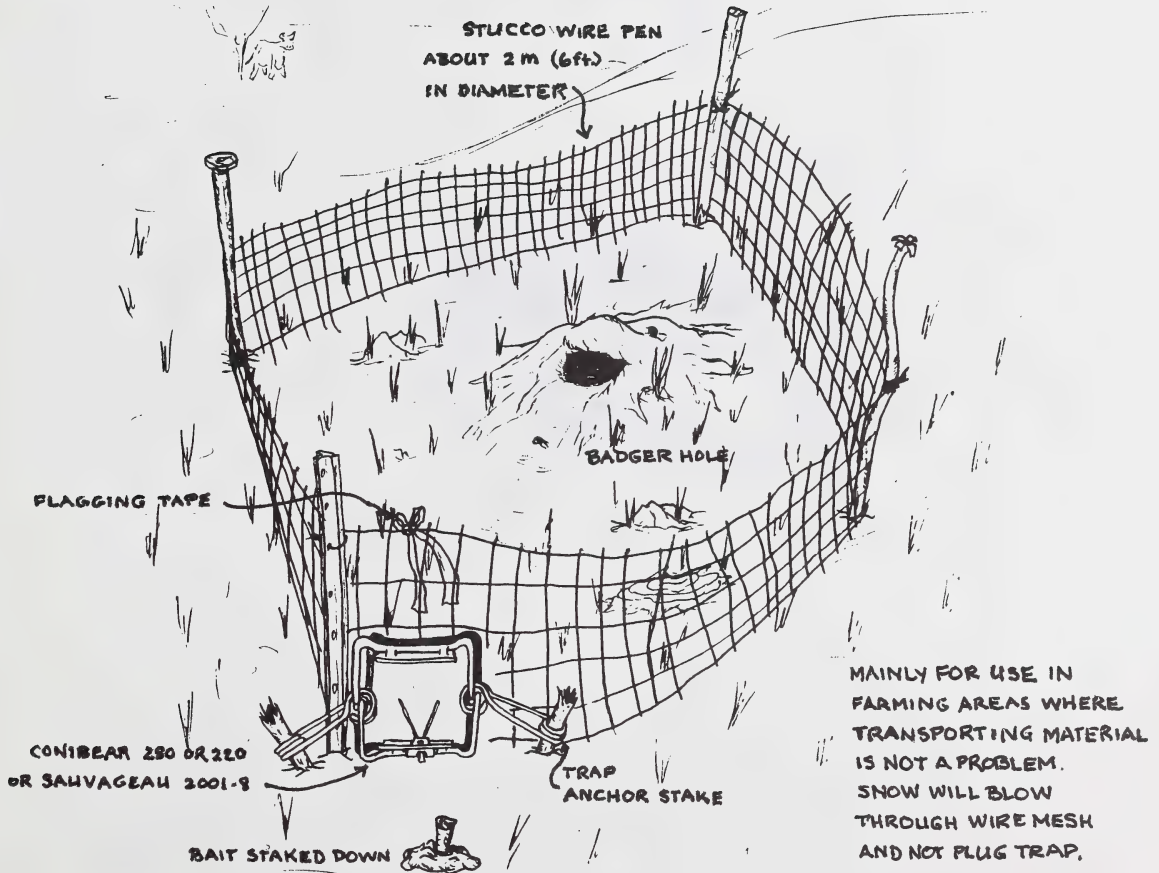 STUCCO WIRE PEN
ABOUT 2 m (6ft.)
IN DIAMETER
BADGER HOLE
FLAGGING TAPE
CONIBEAR 280 OR 220
OR SAUVAGEAU 2001-8
TRAP
ANCHOR STAKE
BAIT STAKED DOWN
MAINLY FOR USE IN
FARMING AREAS WHERE
TRANSPORTING MATERIAL
IS NOT A PROBLEM.
SNOW WILL BLOW
THROUGH WIRE MESH
AND NOT PLUG TRAP.